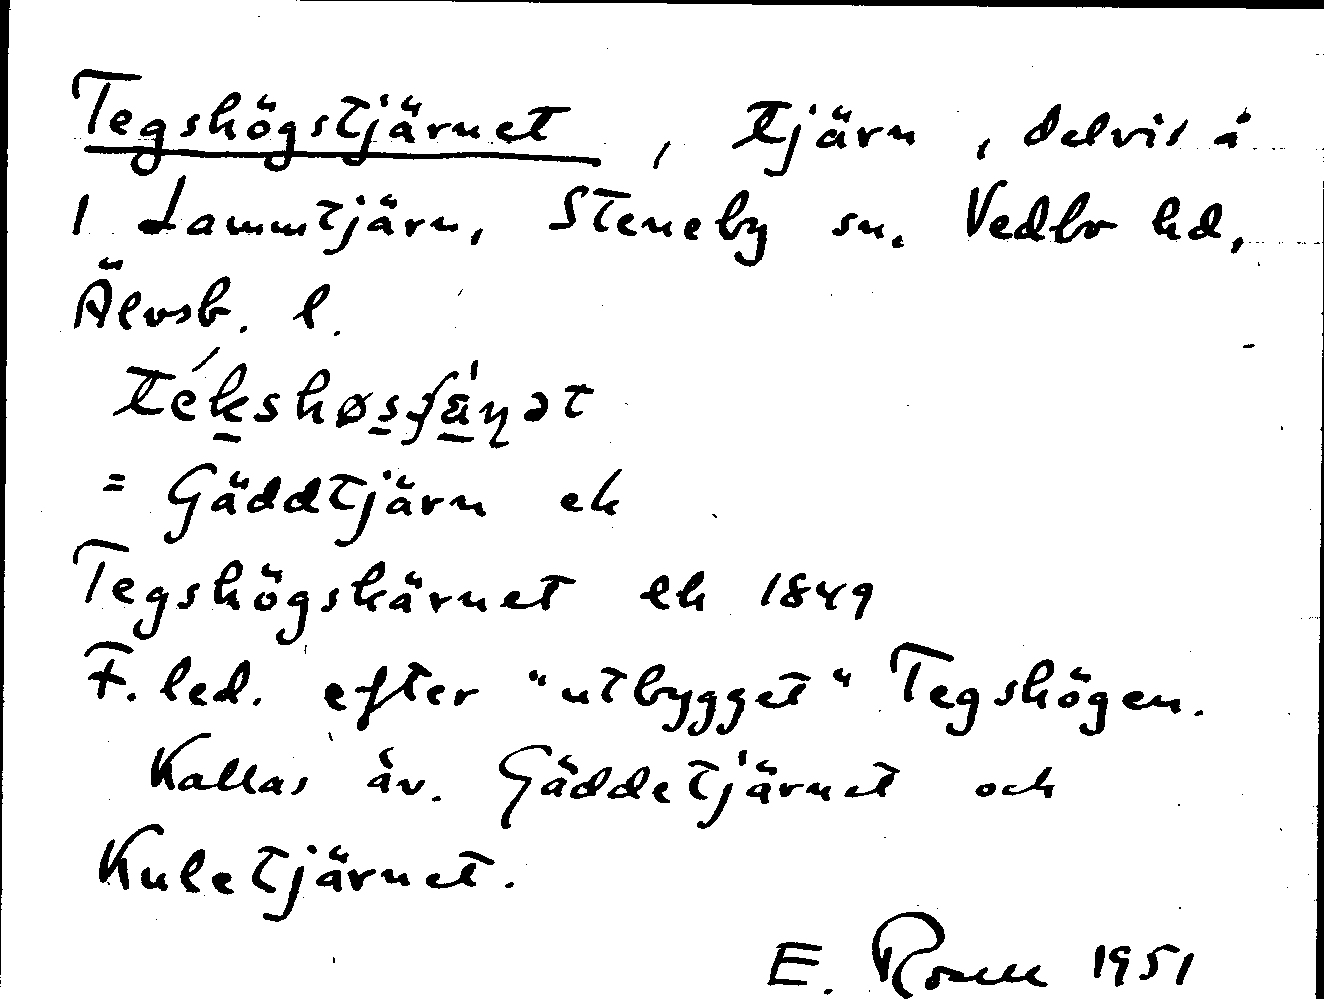 Tegshögstjärnet, tjärn, delvis å
1 Lammtjärn, Steneby sn, Vedbo hd,
Älvsb. l.
= Gäddtjärn ek
Tegshögskärnet ek 1849
F. led. efter "utbygget" Tegshögen.
Kallas äv. Gäddetjärnet och
Kuletjärnet.
E. 1951